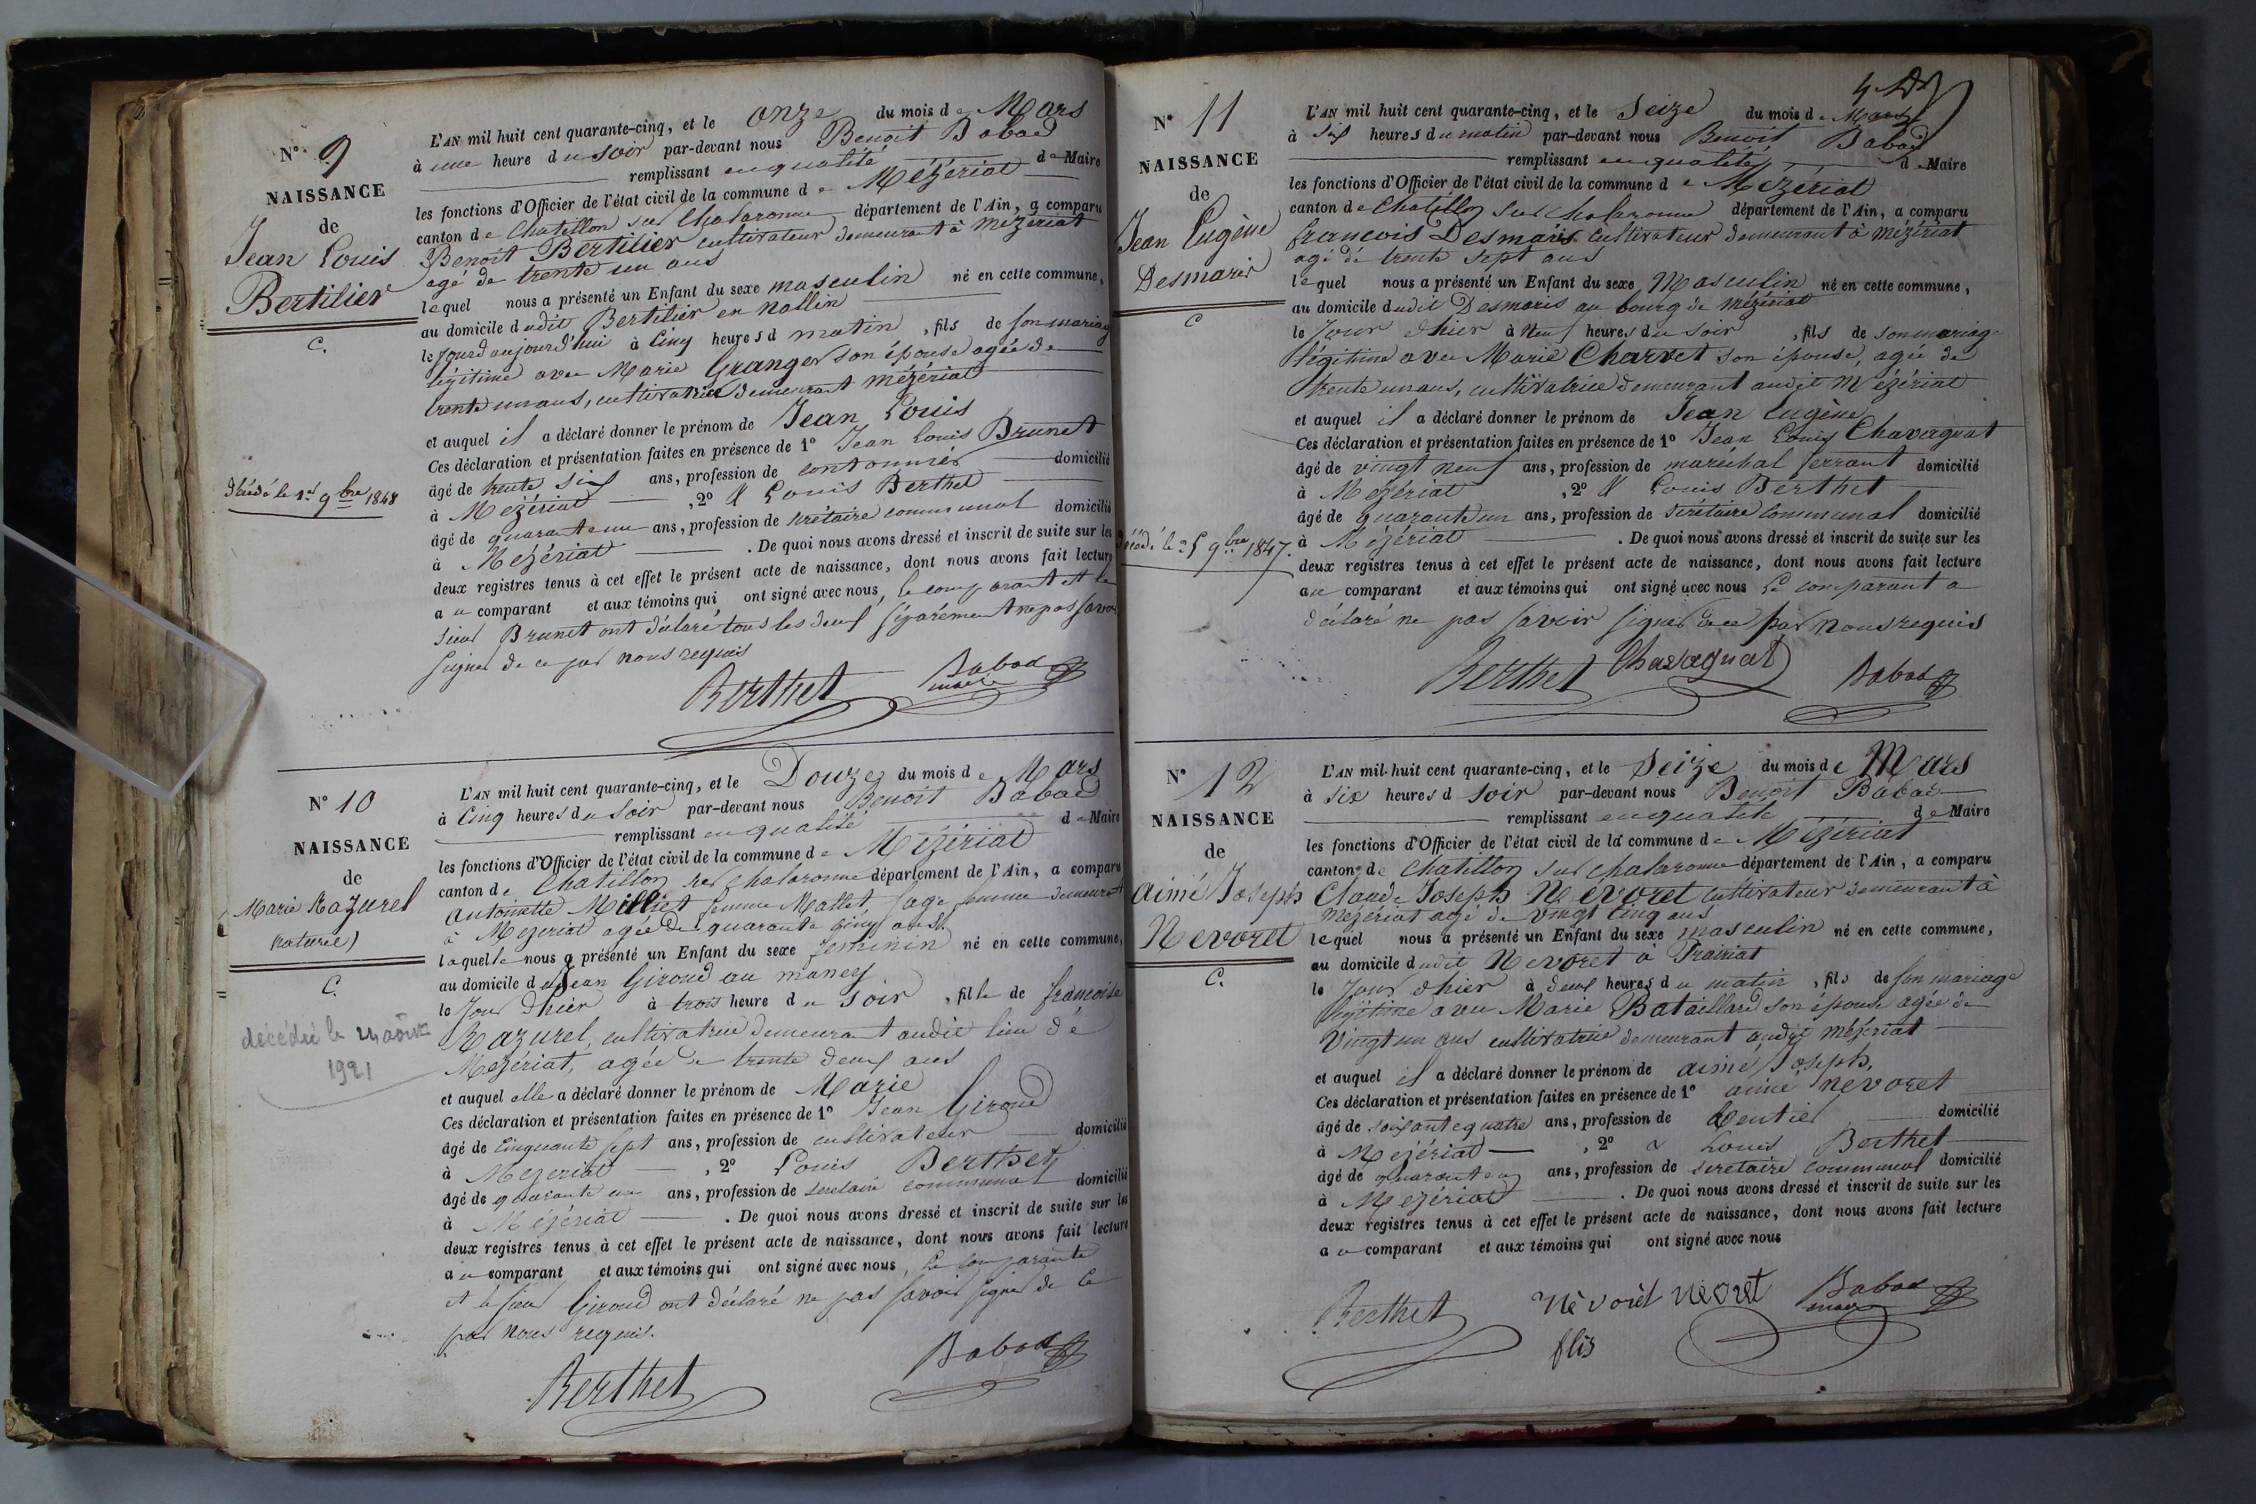 N° 9
NAISSANCE
de
Jean Louis
Bertilier
C.
Décédé le 1er 9bre 1848
L'AN mil huit cent quarante-cinq, et le onze du mois de Mars
à une heure du soir par-devant nous Benoit Babad
remplissant en qualité de Maire
les fonctions d'Officier de l'état civil de la commune de Mézériat
canton de Chatillon sur Chalaronne département de l'Ain, a comparu
Benoit Bertilier cultivateur demeurant à Mézériat
agé de trente un ans
lequel nous a présenté un Enfant du sexe masculin né en cette commune,
au domicile dudit Bertilier en Nallin
le jourd'aujourd'hui à Cinq heures d matin, fils de son mariage
légitime avec Marie Granger son épouse agée de
trente un ans, cultivatrice demeurant Mézériat
et auquel il a déclaré donner le prénom de Jean Louis
Ces déclaration et présentation faites en présence de 1° Jean Louis Brunet
âgé de trente six ans, profession de cantonnier domicilié
à Mézériat, 2° & Louis Berthet
âgé de quarante un ans, profession de secrétaire communal domicilié
à Mézériat. De quoi nous avons dressé et inscrit de suite sur les
deux registres tenus à cet effet le présent acte de naissance, dont nous avons fait lecture
au comparant et aux témoins qui ont signé avec nous, le comparant et le
sieur Brunet ont déclaré tous les deux séparément ne pas savoir
signer de ce par nous requis
Berthet Babad
maire
N° 10
NAISSANCE
de
Marie Razurel
(naturel)
C.
décédée le 24 août
1921
L'AN mil huit cent quarante-cinq, et le Douze du mois de Mars
à Cinq heures du soir par-devant nous Benoit Babad
remplissant en qualité de Maire
les fonctions d'Officier de l'état civil de la commune de Mézériat
canton de Chatillon sur Chalaronne département de l'Ain, a comparu
Antoinette Milliet femme Mallet sage femme demeurant
à Mézériat agée de quarante cinq ans
laquelle nous a présenté un Enfant du sexe féminin né en cette commune,
au domicile du Jean Giroud au maney
le jour d'hier à trois heure du soir, fille de francoise
Razurel, cultivatrice demeurant audit lieu de
Mézériat, agée de trente deux ans
et auquel elle a déclaré donner le prénom de Marie
Ces déclaration et présentation faites en présence de 1° Jean Giroud
âgé de Cinquante sept ans, profession de cultivateur domicilié
à Mézériat, 2° Louis Berthet
âgé de quarante un ans, profession de secrétaire communal domicilié
à Mézériat. De quoi nous avons dressé et inscrit de suite sur les
deux registres tenus à cet effet le présent acte de naissance, dont nous avons fait lecture
au comparant et aux témoins qui ont signé avec nous, la comparante
et le sieur Giroud ont déclaré ne pas savoir signer de ce
par nous requis.
Berthet Babad
N° 11
NAISSANCE
de
Jean Eugène
Desmaris
C
Décédé le 25 9bre 1847.
L'AN mil huit cent quarante-cinq, et le Seize du mois de Mars
à six heures du matin par-devant nous Benoit Babad
remplissant en qualité de Maire
les fonctions d'Officier de l'état civil de la commune de Mézériat
canton de Chatillon sur Chalaronne département de l'Ain, a comparu
francois Desmaris cultivateur demeurant à Mézériat
agé de trente sept ans
lequel nous a présenté un Enfant du sexe Masculin né en cette commune,
au domicile dudit Desmaris au bourg de Mézériat
le Jour d'hier à Neuf heures du soir, fils de son mariage
légitime avec Marie Charvet son épouse, agée de
trente un ans, cultivatrice demeurant audit Mézériat
et auquel il a déclaré donner le prénom de Jean Eugène
Ces déclaration et présentation faites en présence de 1° Jean Louis Chavagnat
âgé de vingt neuf ans, profession de maréchal ferrant domicilié
à Mézériat, 2° & Louis Berthet
âgé de quarante un ans, profession de secrétaire communal domicilié
à Mézériat. De quoi nous avons dressé et inscrit de suite sur les
deux registres tenus à cet effet le présent acte de naissance, dont nous avons fait lecture
au comparant et aux témoins qui ont signé avec nous Le comparant a
déclaré ne pas savoir signer de ce par nous requis
Berthet Chavagnat Babad
N° 12
NAISSANCE
de
aimé Joseph
Nevoret
C.
L'AN mil huit cent quarante-cinq, et le Seize du mois de Mars
à six heures d soir par-devant nous Benoit Babad
remplissant en qualité de Maire
les fonctions d'Officier de l'état civil de la commune de Mézériat
canton de Chatillon sur Chalaronne département de l'Ain, a comparu
Claude Joseph Nevoret cultivateur demeurant à
Mézériat agé de vingt cinq ans
lequel nous a présenté un Enfant du sexe masculin né en cette commune,
au domicile dudit Nevoret à Prairiat
le Jour d'hier à deux heures du matin, fils de son mariage
légitime avec Marie Bataillard son épouse agée de
Vingt un ans cultivatrice demeurant audit Mézériat
et auquel il a déclaré donner le prénom de aimé Joseph,
Ces déclaration et présentation faites en présence de 1° aimé Nevoret
âgé de soixante quatre ans, profession de Rentier domicilié
à Mézériat, 2° & Louis Berthet
âgé de quarante un ans, profession de secretaire communal domicilié
à Mézériat. De quoi nous avons dressé et inscrit de suite sur les
deux registres tenus à cet effet le présent acte de naissance, dont nous avons fait lecture
au comparant et aux témoins qui ont signé avec nous
Berthet Nèvorêt Nevoret Babad
fils maire